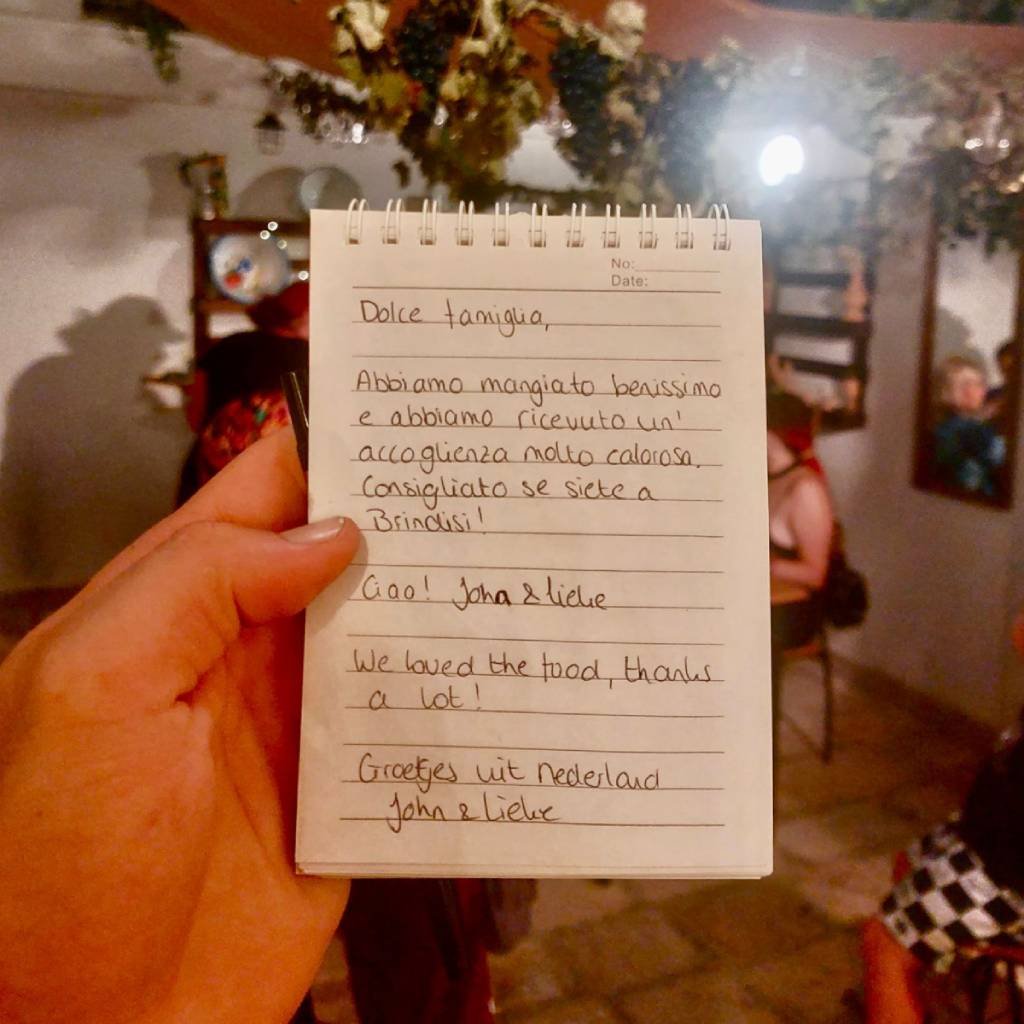 No:
Date:
Dolce famiglia,
Abbiamo mangiato benissimo
e abbiamo ricevuto un'
accoglienza molto calorosa.
Consigliato se siete a
Brindisi!
Ciao! John & Lieke
We loved the food, thanks
a lot!
Groetjes uit nederland
John & Lieke